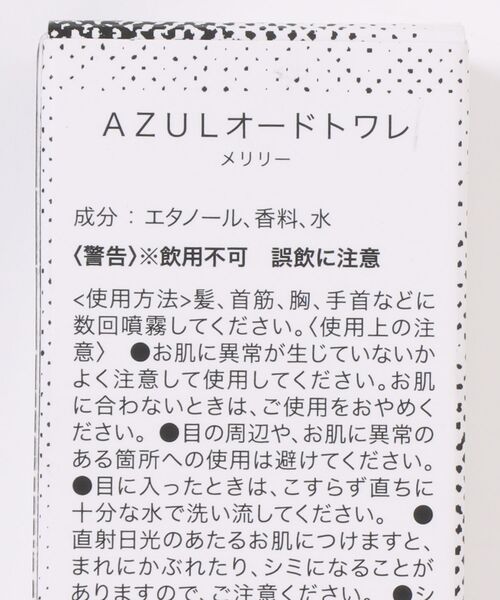 AZULオードトワレ
メリリー
成分：エタノール、香料、水
〈警告〉※飲用不可　誤飲に注意
<使用方法>髪、首筋、胸、手首などに
数回噴霧してください。〈使用上の注
意〉　●お肌に異常が生じていないか
よく注意して使用してください。お肌
に合わないときは、ご使用をおやめく
ださい。●目の周辺や、お肌に異常の
ある箇所への使用は避けてください。
●目に入ったときは、こすらず直ちに
十分な水で洗い流してください。　●
直射日光のあたるお肌につけますと、
まれにかぶれたり、シミになることが
ありますので、ご注意ください。　●シ